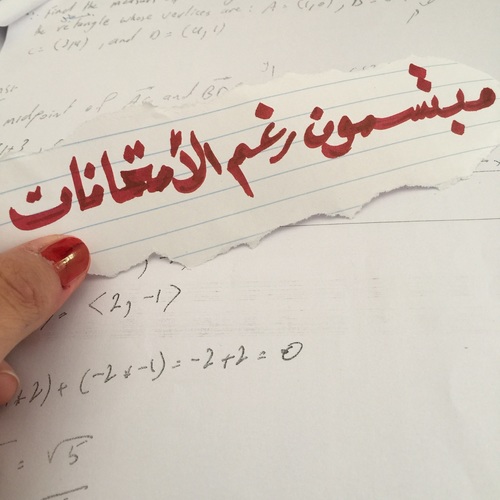 Find the measure of
the rectangle whose vertices are: A = (1, 0), B =
and D = (4, 1)
midpoint of AC and BD
مبتسمون رغم الأمتحانات
= <2, -1>
*2) + (-2 * -1) = -2 + 2 = 0
= √5